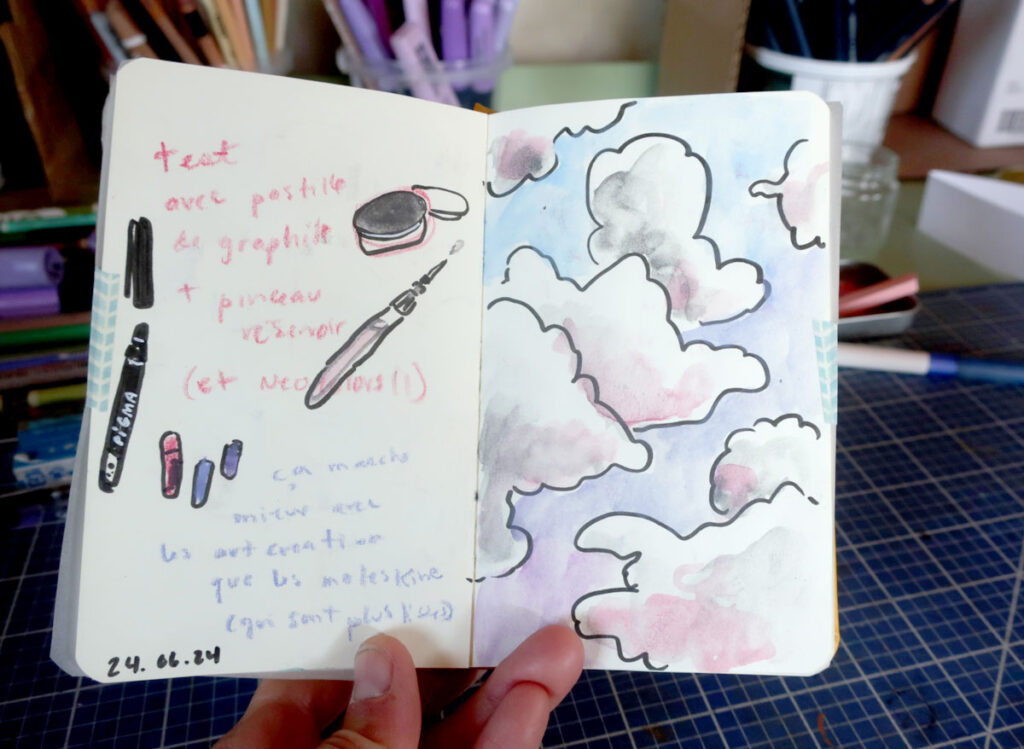 test
avec pastille
de graphite
+ pinceau
reservoir
(et Neocolors II)
1.0 PIGMA
ça marche
mieux avec
les art creation
que les moleskine
(qui sont plus
24.06.24